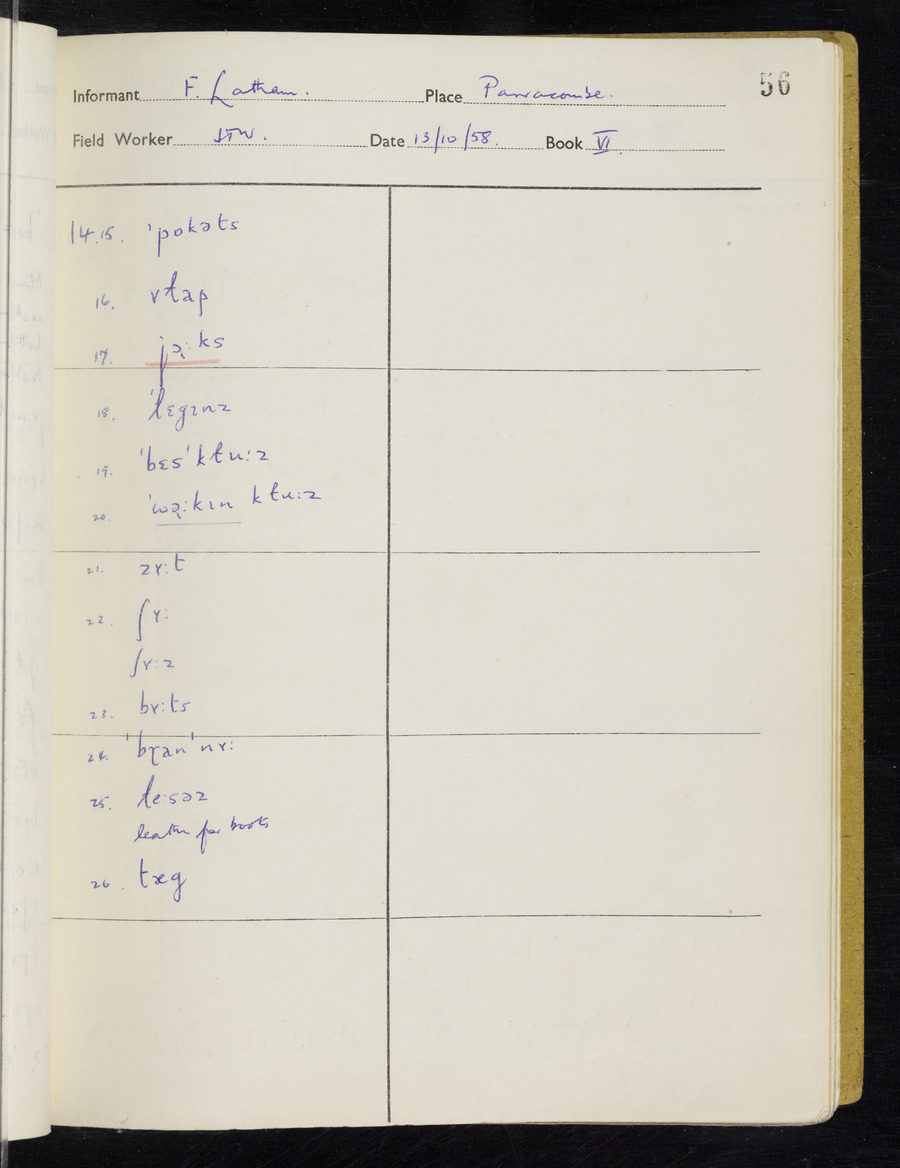 56
Informant F. Latham. Place Parracombe.
Field Worker JTW. Date 13/10/58. Book VI.
14.15. ˈpokəts
16. vɫap
17. jɔ̢:ks
18. ˈɫɛgɪnz
19. ˈbɛsˈkɫu:z
20. ˈwə̢:kɪn kɫu:z
21. zʏ:t
22. ʃʏ:
ʃʏ:z
23. bʏ:ts
24. ˈbɽanˈnʏ:
25. ɫe:səz
leather for boots
26. tæg